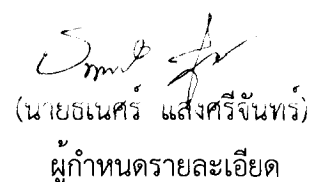 (นายธเนศร์ แสงศรีจันทร์)
ผู้กำหนดรายละเอียด